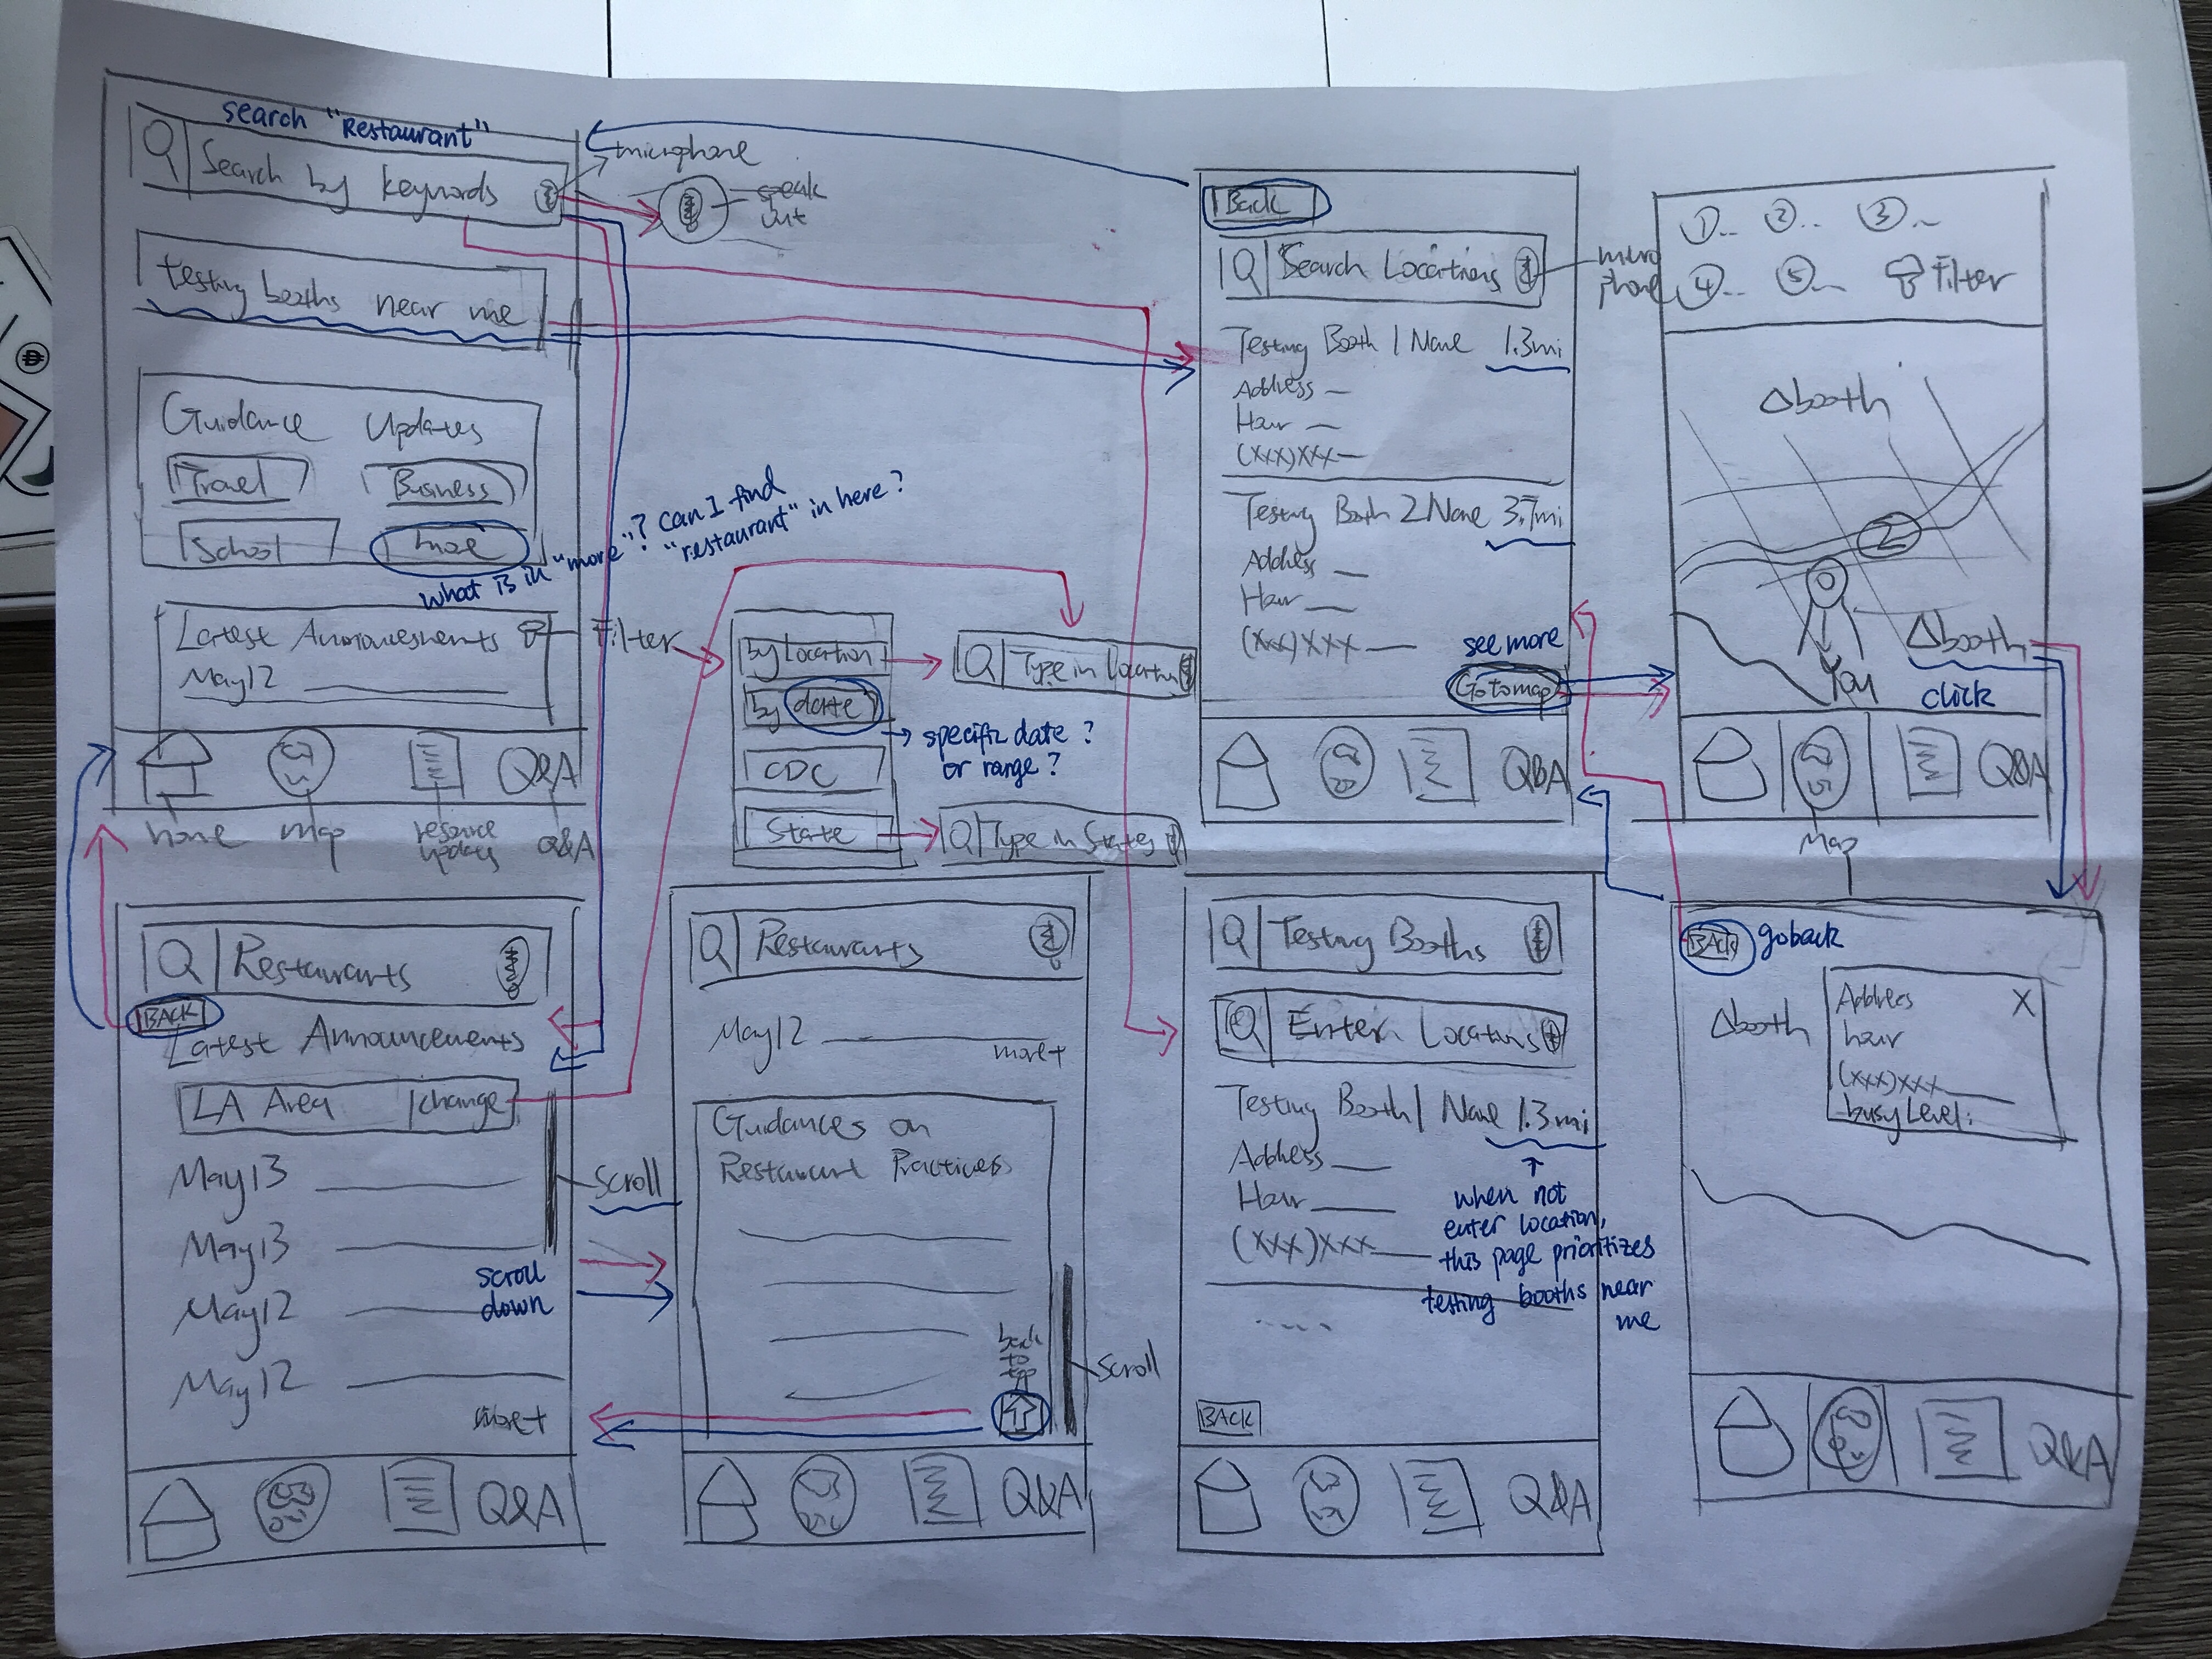 search "Restaurant"
Search by keywords
microphone
speak
out
testing booths near me
Guidance Updates
Travel Business
School more
what is in "more"? can I find
"restaurant" in here?
Latest Announcements
May 12
Filter
home map resource updates Q&A
Q&A
by Location
by date
CDC
State
Type in Locations
specific date?
or range?
Type in States
Back
Search Locations
micro
phone
Testing Booth 1 Name 1.3mi
Address
Hour
(XXX)XXX
Testing Booth 2 Name 3.7mi
Address
Hour
(XXX)XXX
see more
Go to map
Q&A
1 2 3
4 5 Filter
booth
2
booth
You
click
Q&A
Map
Restaurants
BACK
Latest Announcements
LA Area change
May 13
May 13
May 12
May 12
more+
scroll
scroll
down
Q&A
Restaurants
May 12
more+
Guidances on
Restaurant Practices
back
to
top
scroll
Q&A
Testing Booths
Enter Locations
Testing Booth 1 Name 1.3mi
Address
Hour
(XXX)XXX
when not
enter location,
this page prioritizes
testing booths near
me
BACK
Q&A
BACK go back
booth
Address X
hour
(XXX)XXX
busy Level:
Q&A